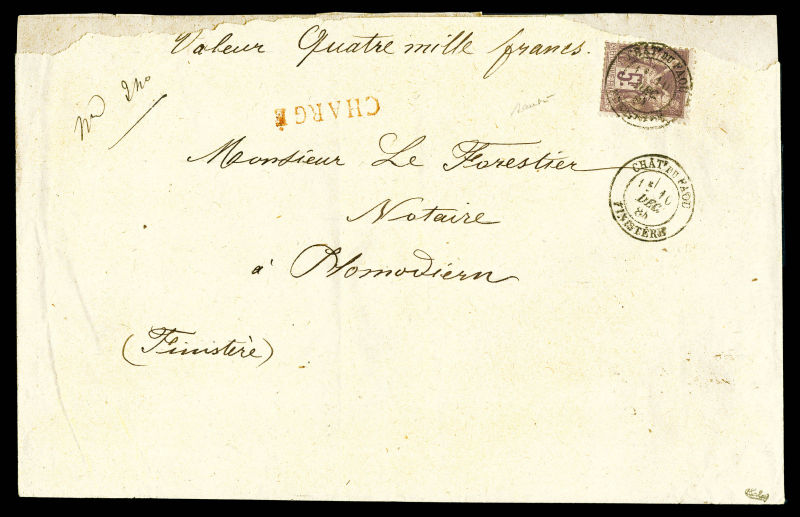 Valeur Quatre mille francs.
CHARGÉ
Monsieur Le Forestier
Notaire
à Plomodiern
(Finistère)
CHATNEUF DU FAOU
5
CHÂT. DU FAOU
DEC
85
FINISTÈRE